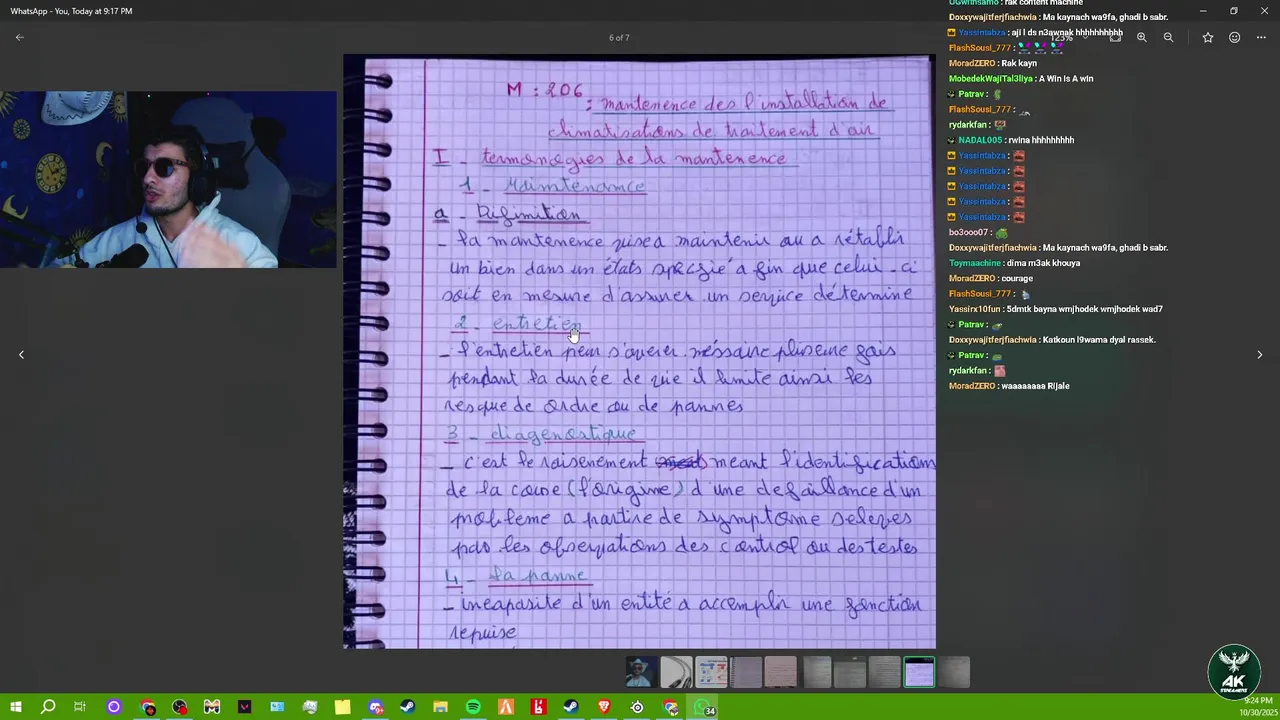 WhatsApp - You, Today at 9:17 PM
6 of 7
123%
M : 206
: mantenence des l'installation de
climatisations de traitement d'air
I - termonogies de la mantenence
1 - Maintenance
a - Définition
- la mantenence visea maintenir ou a rétablir
un bien dans un états spécifié a fin que celui-ci
soit en mesure d'assurer un service détermine
2 - entretien
- l'entretien peur s'averer
pendant la durée de vie il limite ainsi les
resque de ordre ou de pannes
3 - diagenostique
- c'est le raisenement meant l'identifications
de la cause (l'origine) d'une defaillance d'un
probleme a partire de symptome
par les observations des control ou des testes
4 - la panne
- incapasite d'un entité a accomplir une fonction
requise
UGwithsamo : rak content machine
Doxxywajitferjfiachwia : Ma kaynach wa9fa, ghadi b sabr.
Yassintabza : aji l ds n3awnak hhhhhhhhhh
FlashSousi_777 :
MoradZERO : Rak kayn
MobedekWajiTal3liya : A Win Is A win
Patrav :
FlashSousi_777 :
rydarkfan :
NADAL005 : rwina hhhhhhhhh
Yassintabza :
Yassintabza :
Yassintabza :
Yassintabza :
Yassintabza :
bo3ooo07 :
Doxxywajitferjfiachwia : Ma kaynach wa9fa, ghadi b sabr.
Toymaachine : dima m3ak khouya
MoradZERO : courage
FlashSousi_777 :
Yassirx10fun : 5dmtk bayna wmjhodek wmjhodek wad7
Patrav :
Doxxywajitferjfiachwia : Katkoun l9wama dyal rassek.
Patrav :
rydarkfan :
MoradZERO : waaaaaaaa Rijale
AK
STREAMERS
34
9:24 PM
10/30/2025